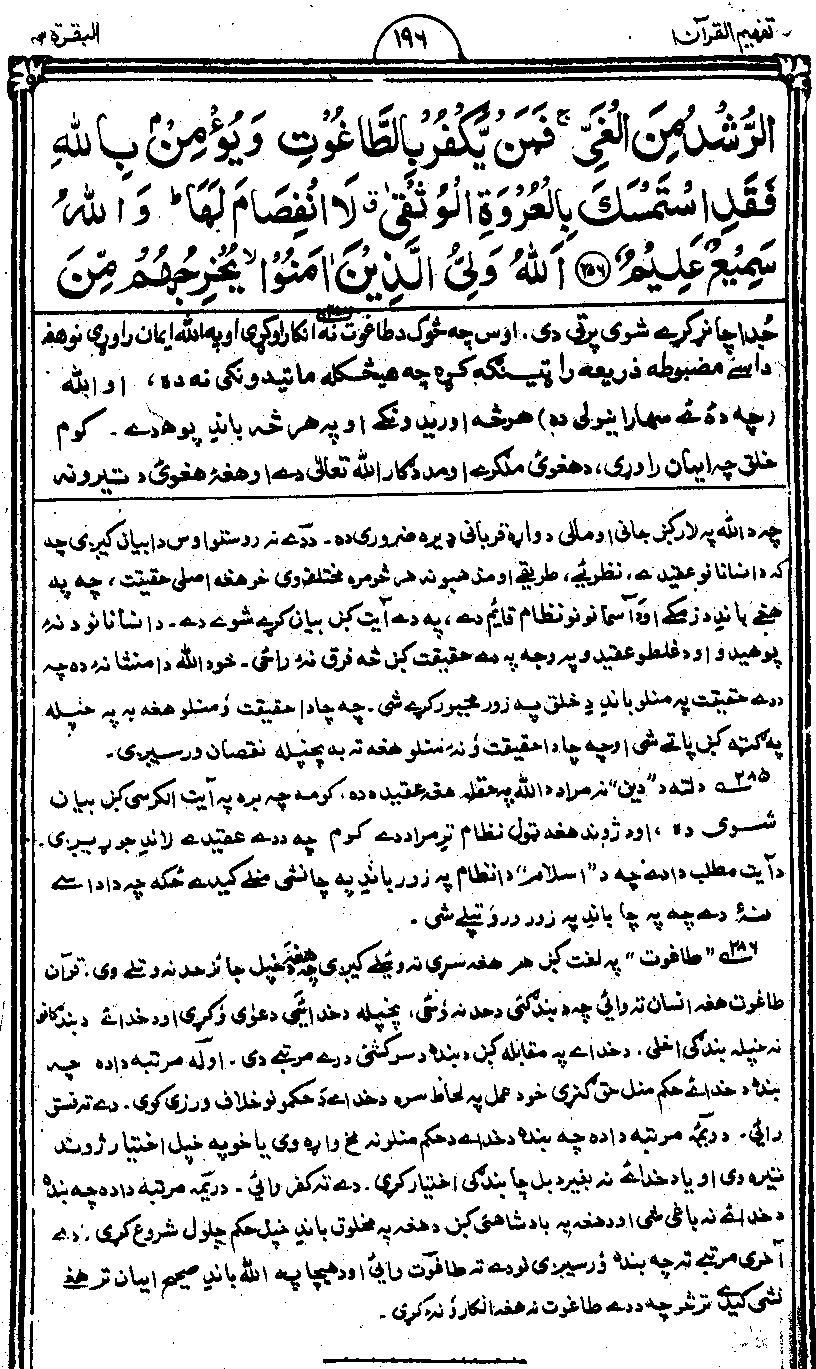 تفهیم القرآن ۱
۱۹۶
البقرة ۳
الرُّشْدُ مِنَ الْغَيِّ ۚ فَمَنْ يَّكْفُرْ بِالطَّاغُوْتِ وَيُؤْمِنْۢ بِاللهِ
فَقَدِ اسْتَمْسَكَ بِالْعُرْوَةِ الْوُثْقٰى ۗ لَا انْفِصَامَ لَهَا ؕ وَاللهُ
سَمِيْعٌ عَلِيْمٌ ﴿۲۵۶﴾ اَللهُ وَلِيُّ الَّذِيْنَ اٰمَنُوْا ۙ يُخْرِجُهُمْ مِّنَ
جُدا چانړ کړے شوی پرتی دی. اوس چه څوک د طاغوت نه انکار اوکړی او په الله ایمان راوړی نو هغه
داسے مضبوطه ذریعه را ټینګه کړه چه هیڅکله ماتیدونکی نه ده، او الله
(چه دهٔ ئے سهارا نیولی ده) هر څه اوریدونکے او په هر څه باندِ پوهه دے. کوم
خلق چه ایمان راوړی، دهغوئ ملګرے او مددګار الله تعالیٰ دے او هغهٔ هغوئ د تیرونه
چه د الله په لار کښ جانی او مالی دواړه قربانی ډیره ضروری ده. ددے نه روستو اوس دا بیان کیږی چه
که د انسانانو عقیدے، نظریئے، طریقے او مذهبونه هر څومره مختلف وی خو هغه اصلی حقیقت، چه په
هغے باندِ د زمکے او د آسمانونو نظام قائم دے، په دے آیت کښ بیان کړے شوے دے. د انسانانو د نهٔ
پوهیدو او د غلطو عقیدو په وجه په دے حقیقت کښ څه فرق نهٔ راځی. خو د الله دا منشا نهٔ ده چه
ددے حقیقت په منلو باندِ دِ خلق په زور مجبور کړے شی. چه چا دا حقیقت وُ منلو هغه به په خپله
په ګټه کښ پاتے شی او چه چا دا حقیقت وُ نهٔ منلو هغه ته به پخپله نقصان ورسیږی.
۲۸۵ دلته د "دین" نه مراد د الله په حقله هغه عقیده ده، کومه چه بره په آیت الکرسی کښ بیان
شوی ده، او د ژوند هغه ټول نظام ترِ مراد دے کوم چه ددے عقیدے لاندِ جوړیږی.
د آیت مطلب دا دے چه د "اسلام" دا نظام په زور باندِ په چا نشی منلے کیدے ځکه چه دا داسے
نهٔ دے چه په چا باندِ په زور ورو تپلے شی.
۲۸۶ "طاغوت" په لغت کښ هر هغه سړی ته وئیلے کیږی چه هغه د خپل جائز حد نه وتلے وی. قرآن
طاغوت هغه انسان ته وائی چه د بندګئ د حد نه وُځی، پخپله د خدائی دعوٰی وُکړی او د خدائے د بندګانو
نه خپله بندګی اخلی. د خدائے په مقابله کښ د بندهٔ د سرکشئ درے مرتبے دی. اوله مرتبه دا ده چه
بندهٔ د خدائے حکم منل حق ګنړی خو د عمل په لحاظ سره د خدائے د حکمونو خلاف ورزی کوی. دے ته فسق
وائی. دویمه مرتبه دا ده چه بندهٔ د خدائے د حکم منلو نه مخ واړه وی یا خو په خپل اختیار ژوند
تیره وی او یا د خدائے نه بغیر د بل چا بندګی اختیار کړی. دے ته کفر وائی. دریمه مرتبه دا ده چه بندهٔ
د خدائے نه باغی شی او د هغه په بادشاهئ کښ د هغه په مخلوق باندِ خپل حکم چلول شروع کړی. دے
آخری مرتبے ته چه بندهٔ وُرسیږی نو دے ته طاغوت وائی او د هیچا په الله باندِ صحیح ایمان تر هغے
نشی کیدے ترڅو چه ددے طاغوت نه هغه انکار وُنهٔ کړی.